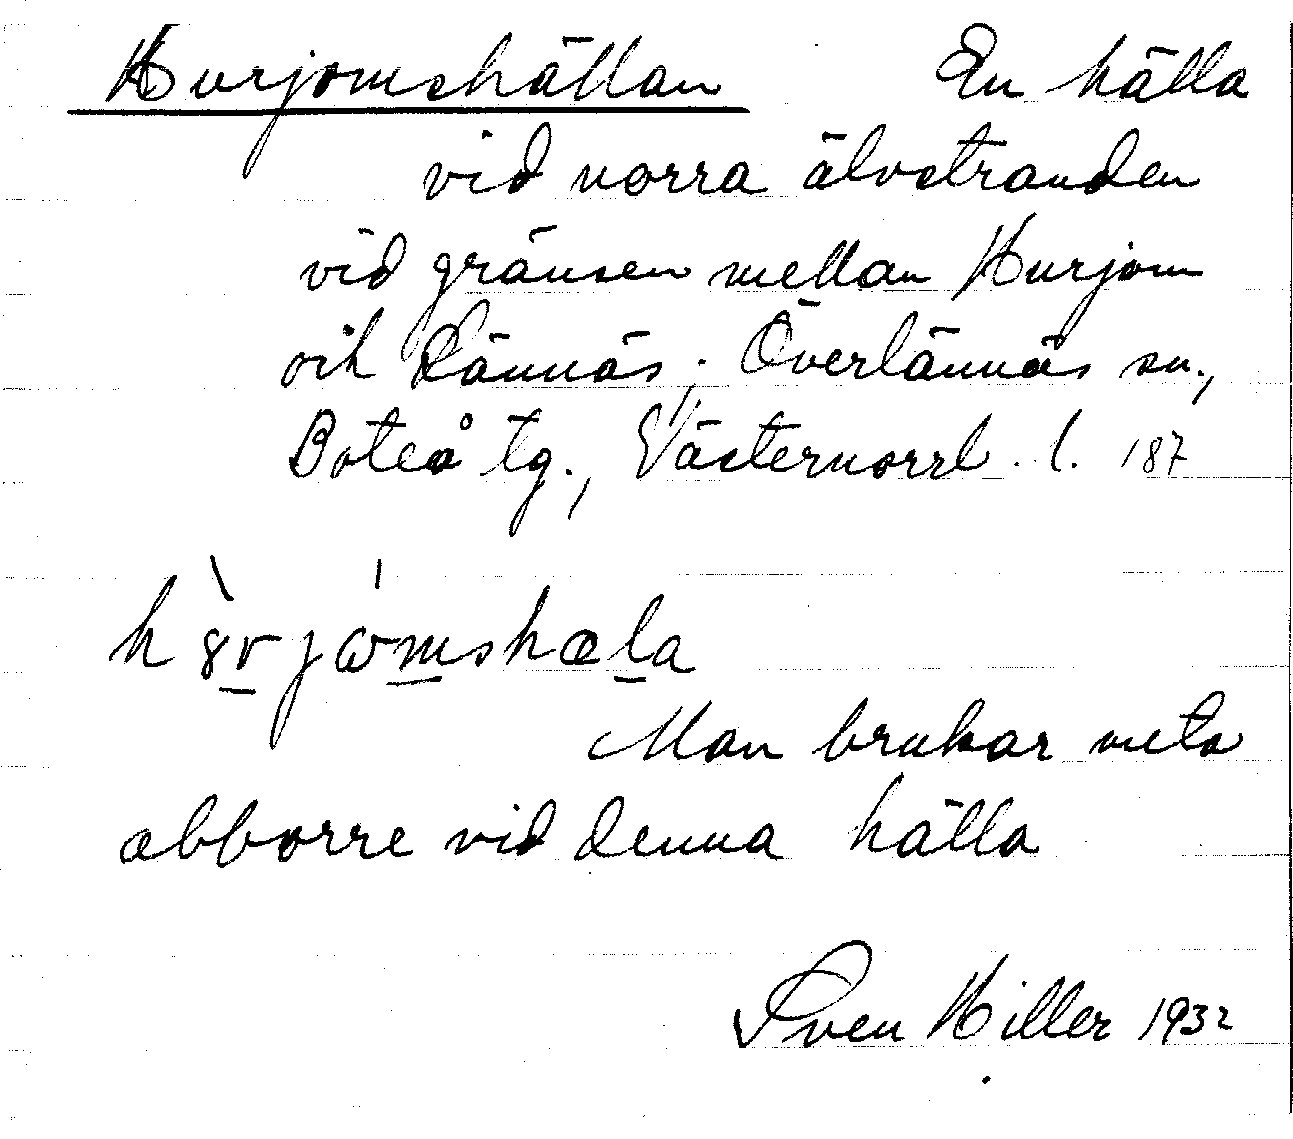 Hurjomshällan En hälla
vid norra älvstranden
vid gränsen mellan Hurjom
och Lännäs; Överlännäs sn.,
Boteå tg., Västernorrl. l. 187
h8̀rjώmshæla
Man brukar meta
abborre vid denna hälla
Sven Hiller 1932